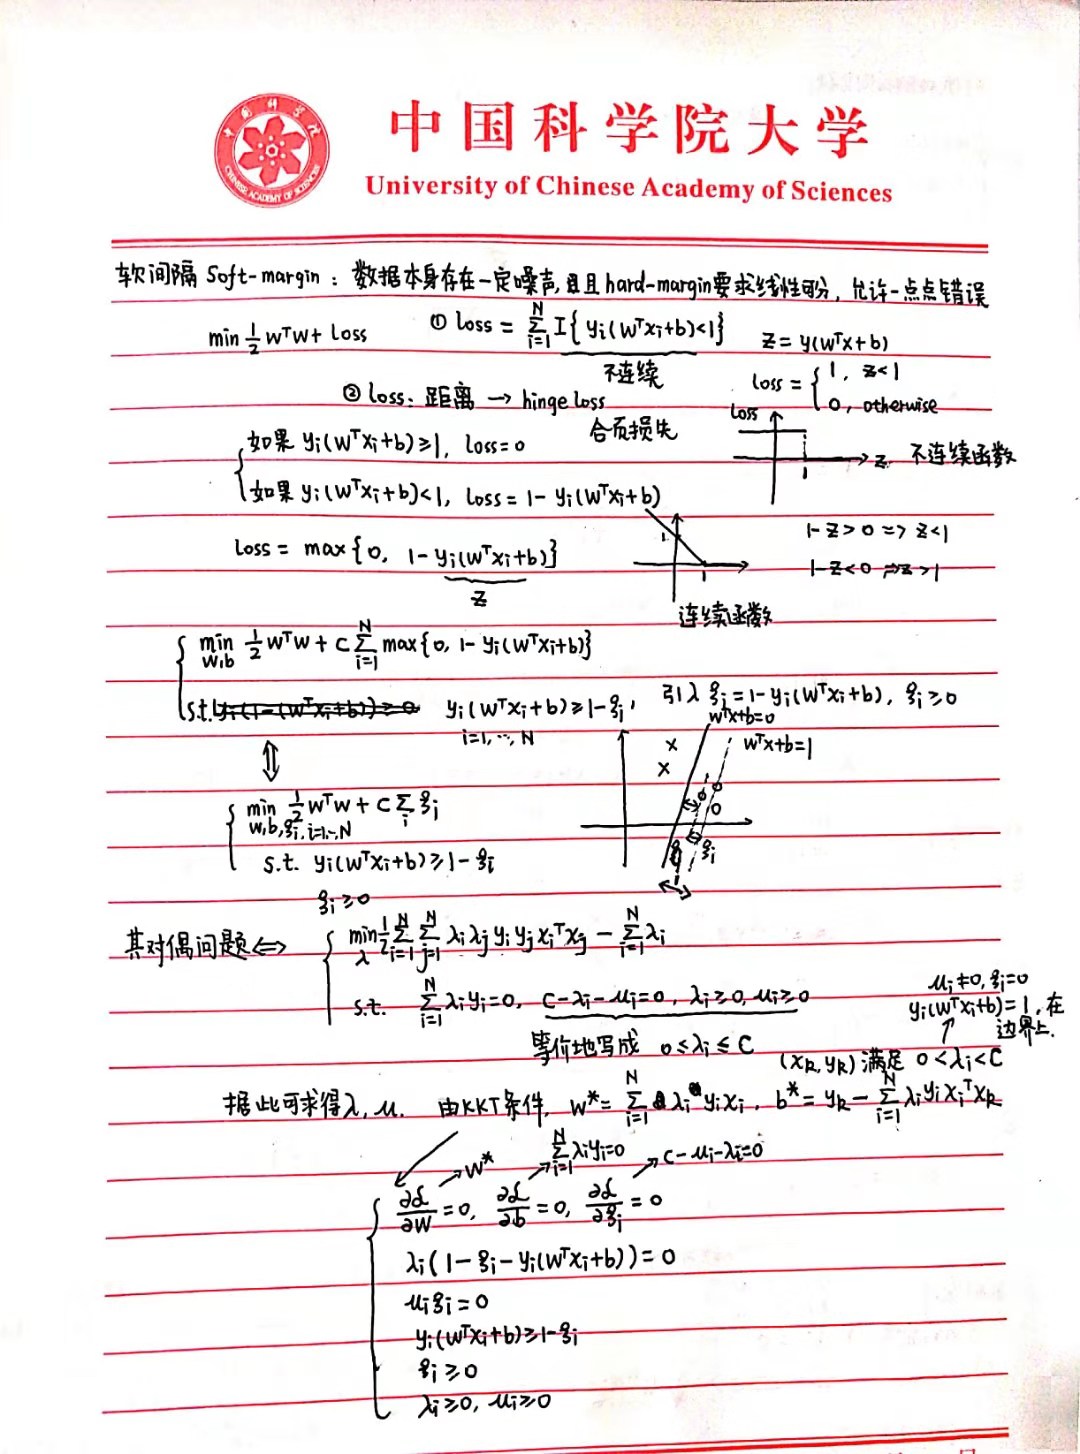 中国科学院大学
University of Chinese Academy of Sciences
软间隔 Soft-margin：数据本身存在一定噪声，且 hard-margin要求线性可分，允许一点点错误
min ½ wᵀw + Loss ① loss = Σ_{i=1}^N I{yᵢ(wᵀxᵢ+b)<1} z = y(wᵀx+b)
不连续 loss = { 1, z<1
② loss: 距离 → hinge loss 0, otherwise
合页损失
Loss z 1 不连续函数
{ 如果 yᵢ(wᵀxᵢ+b)≥1, loss=0
如果 yᵢ(wᵀxᵢ+b)<1, loss = 1- yᵢ(wᵀxᵢ+b)
Loss = max{0, 1-yᵢ(wᵀxᵢ+b)}
z
1 1 连续函数
1-z>0 => z<1
1-z<0 => z>1
{ min_{w,b} ½ wᵀw + C Σ_{i=1}^N max{0, 1- yᵢ(wᵀxᵢ+b)}
s.t. yᵢ(wᵀxᵢ+b)≥1-ξᵢ, 引入 ξᵢ = 1-yᵢ(wᵀxᵢ+b), ξᵢ≥0
i=1,…,N
wᵀx+b=0
wᵀx+b=1
ξᵢ
⇕
{ min_{w,b,ξᵢ,i=1…N} ½ wᵀw + C Σ_i ξᵢ
s.t. yᵢ(wᵀxᵢ+b)≥1-ξᵢ
ξᵢ≥0
其对偶问题 ⇔ { min_λ ½ Σ_{i=1}^N Σ_{j=1}^N λᵢλⱼyᵢyⱼxᵢᵀxⱼ - Σ_{i=1}^N λᵢ
s.t. Σ_{i=1}^N λᵢyᵢ=0, C-λᵢ-μᵢ=0, λᵢ≥0, μᵢ≥0
等价地写成 0≤λᵢ≤C
μᵢ≠0, ξᵢ=0
yᵢ(wᵀxᵢ+b)=1, 在边界上.
(x_k, y_k) 满足 0<λᵢ<C
据此可求得λ, μ. 由KKT条件, w* = Σ_{i=1}^N λᵢyᵢxᵢ, b* = y_k - Σ_{i=1}^N λᵢyᵢxᵢᵀx_k
→w* →Σ_{i=1}^N λᵢyᵢ=0 →C-μᵢ-λᵢ=0
{ ∂L/∂w = 0, ∂L/∂b = 0, ∂L/∂ξᵢ = 0
λᵢ(1-ξᵢ-yᵢ(wᵀxᵢ+b))=0
μᵢξᵢ=0
yᵢ(wᵀxᵢ+b)≥1-ξᵢ
ξᵢ≥0
λᵢ≥0, μᵢ≥0